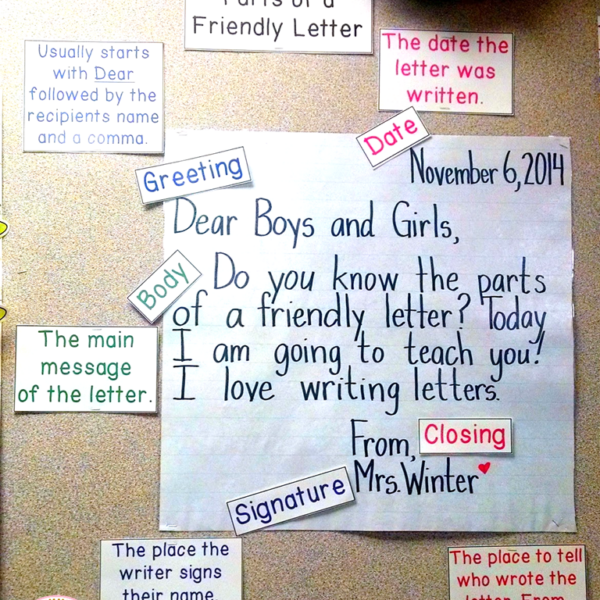 Parts of a
Friendly Letter
Usually starts
with Dear
followed by the
recipients name
and a comma.
The date the
letter was
written.
Date
Greeting
November 6, 2014
Dear Boys and Girls,
Body
Do you know the parts
of a friendly letter? Today
I am going to teach you!
I love writing letters.
The main
message
of the letter.
From,
Closing
Mrs. Winter
Signature
The place the
writer signs
their name.
The place to tell
who wrote the
letter. From